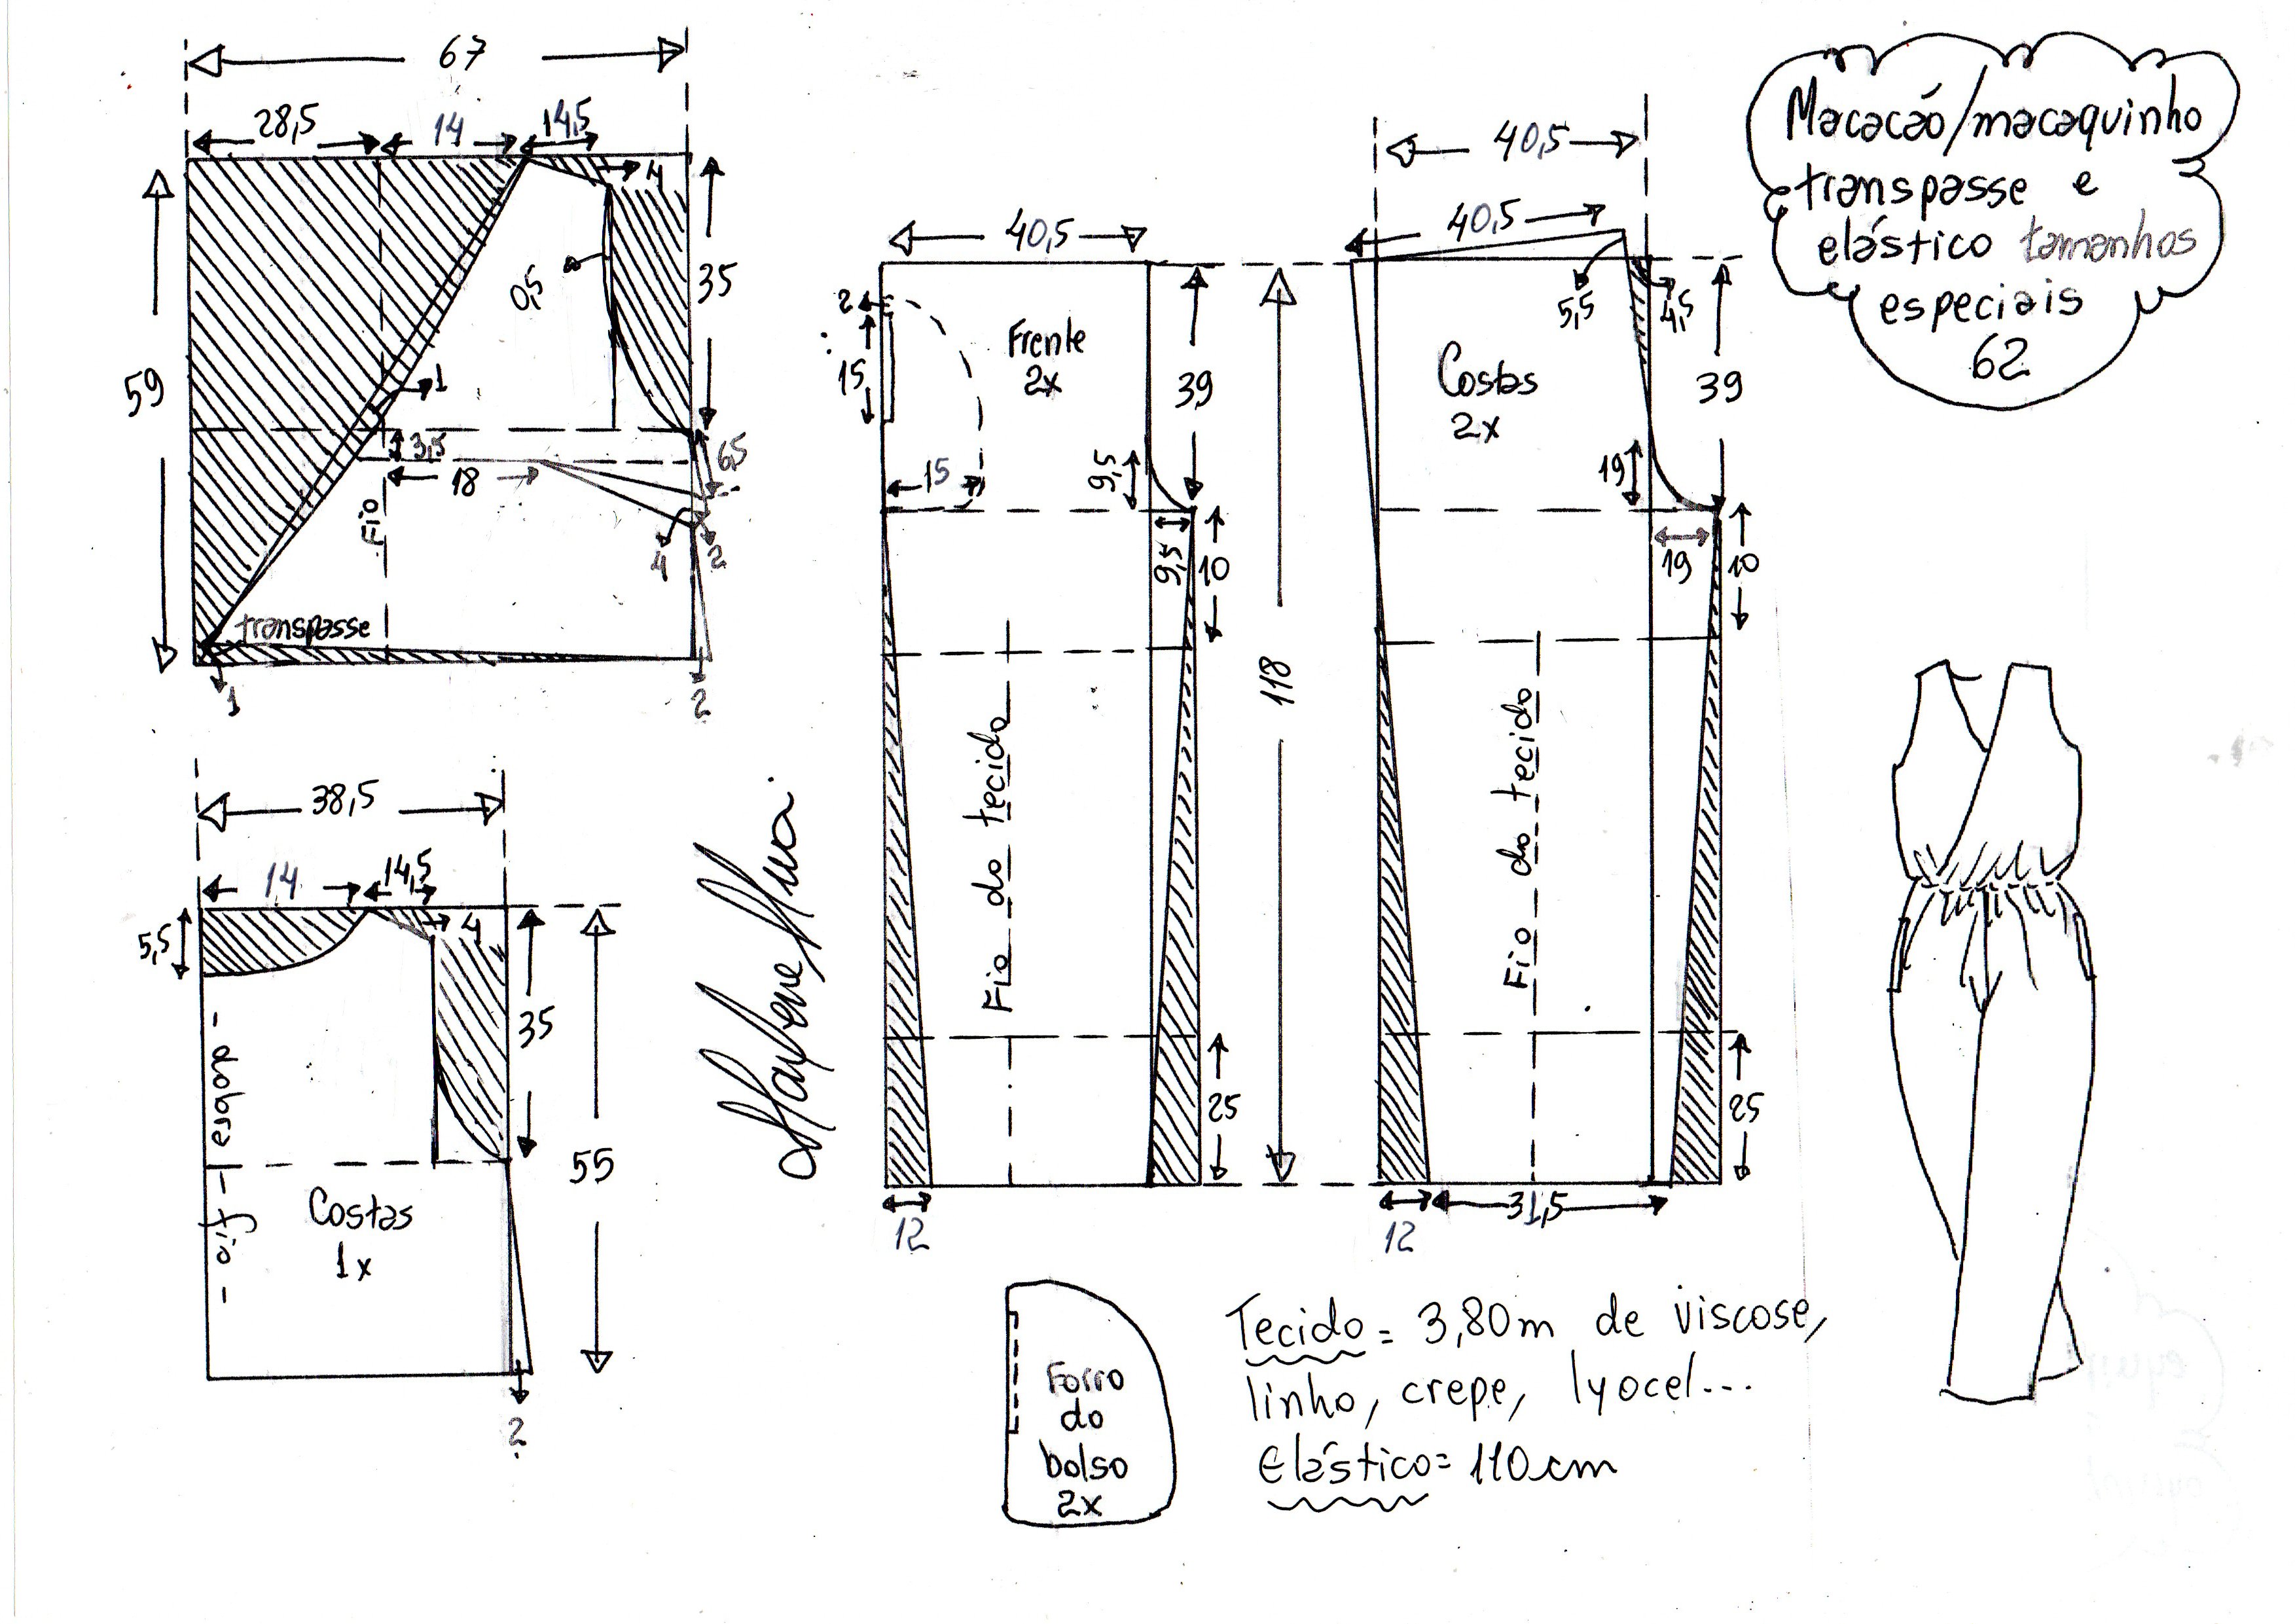 67
28,5 14 14,5
4
59
35
0,5
1
3,5
6,5
18
Fio
4 2
transpasse
1
2
38,5
14 14,5
5,5
4
35
55
dobra - fio -
Costas
1x
2
40,5
2
15
Frente
2x
39
9,5
15
9,5
10
118
Fio do tecido
25
12
40,5
40,5
5,5
4,5
Costas
2x
39
19
19
10
Fio do tecido
25
12
31,5
Macacão/macaquinho
transpasse e
elástico tamanhos
especiais
62
Forro
do
bolso
2x
Tecido = 3,80m de viscose,
linho, crepe, lyocel...
Elástico = 110cm